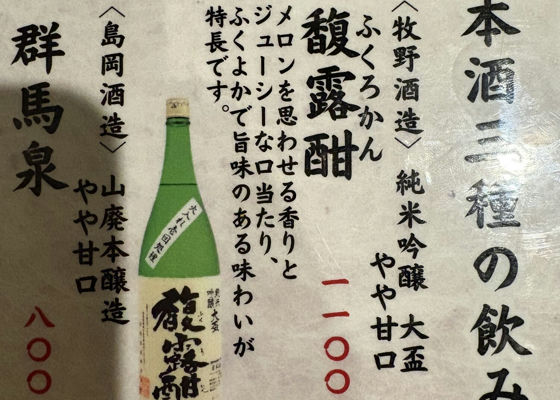 本酒三種の飲み
〈牧野酒造〉 純米吟醸 大盃
やや甘口
ふくろかん
馥露酣
一一〇〇
メロンを思わせる香りと
ジューシーな口当たり、
ふくよかで旨味のある味わいが
特長です。
火入れ壱回処理
純米
吟醸
大盃
馥露酣
〈島岡酒造〉 山廃本醸造
やや甘口
群馬泉
八〇〇